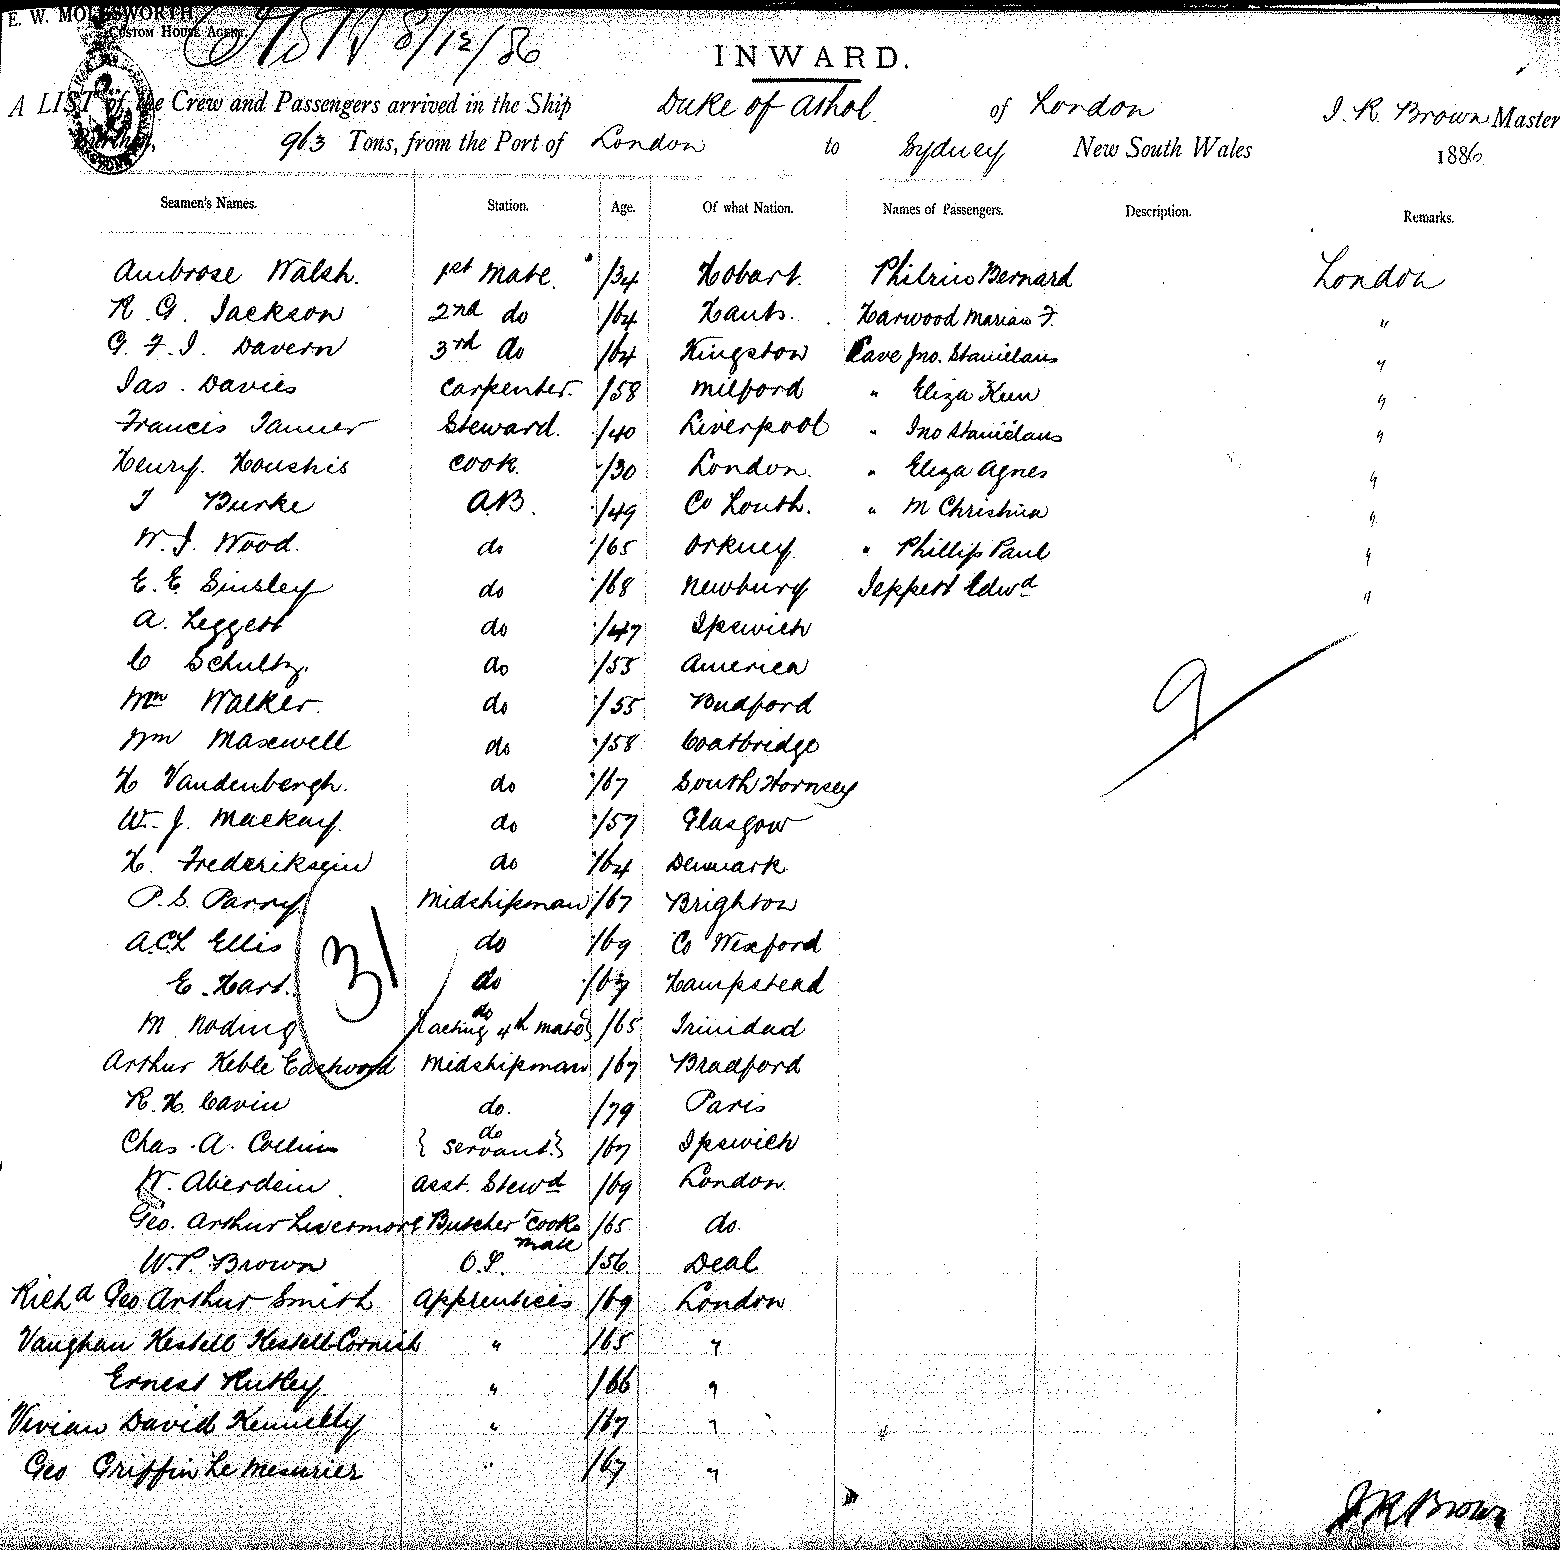 E. W. MOLESWORTH
CUSTOM HOUSE AGENT.
8/12/86
INWARD.
A LIST of the Crew and Passengers arrived in the Ship Duke of Athol of London J. R. Brown Master
Burthen, 963 Tons, from the Port of London to Sydney New South Wales 1886
Seamen's Names. Station. Age. Of what Nation. Names of Passengers. Description. Remarks.
Ambrose Walsh. 1st Mate. /34 Hobart. Bernard London
R. G. Jackson 2nd do /64 Hants. Harwood Marian F. "
G. F. J. Davern 3rd do /64 Kingston Cave Jno. Stanislaus "
Jas. Davies Carpenter. /58 Milford " Eliza "
Francis Tanner Steward. /40 Liverpool " Jno Stanislaus "
Henry. Cook. /30 London. " Eliza Agnes "
J Burke A.B. /49 Co Louth. " M Christina "
W. J. Wood. do /65 Orkney " Phillip Paul "
E. E. do /68 Newbury Jeppett Edwd "
A. Leggett do /47 Ipswich
C Schultz. do /55 America
Wm Walker. do /55
Wm Maxwell do /58 Coatbridge
H Vandenbergh. do /67 South Hornsey
W. J. Mackay. do /57 Glasgow
H. Frederiksein do /64 Denmark
P. S. Parry Midshipman /67 Brighton
A.C.L Ellis do /69 Co Wexford
E. Hart. do /67 Hampstead
M Noding do {acting 4th mate} /65 Trinidad
Arthur Keble Eastwood Midshipman /67 Bradford
R. H. Cavin do. /79 Paris
Chas. A. Collins do {servant.} /67 Ipswich
W. Aberdein. Asst. Stewd /69 London.
Geo. Arthur Livermore Butcher & Cooks mate /65 do.
W. P. Brown O.S. /56 Deal
Richd Geo Arthur Smith Apprentices /69 London
Vaughan Kestell Kestell-Cornish " /65 "
Ernest Rutley " /66 "
Vivian David Kennelly " /67 "
Geo Griffin Le Mesurier " /67 "
31
9
J R Brown